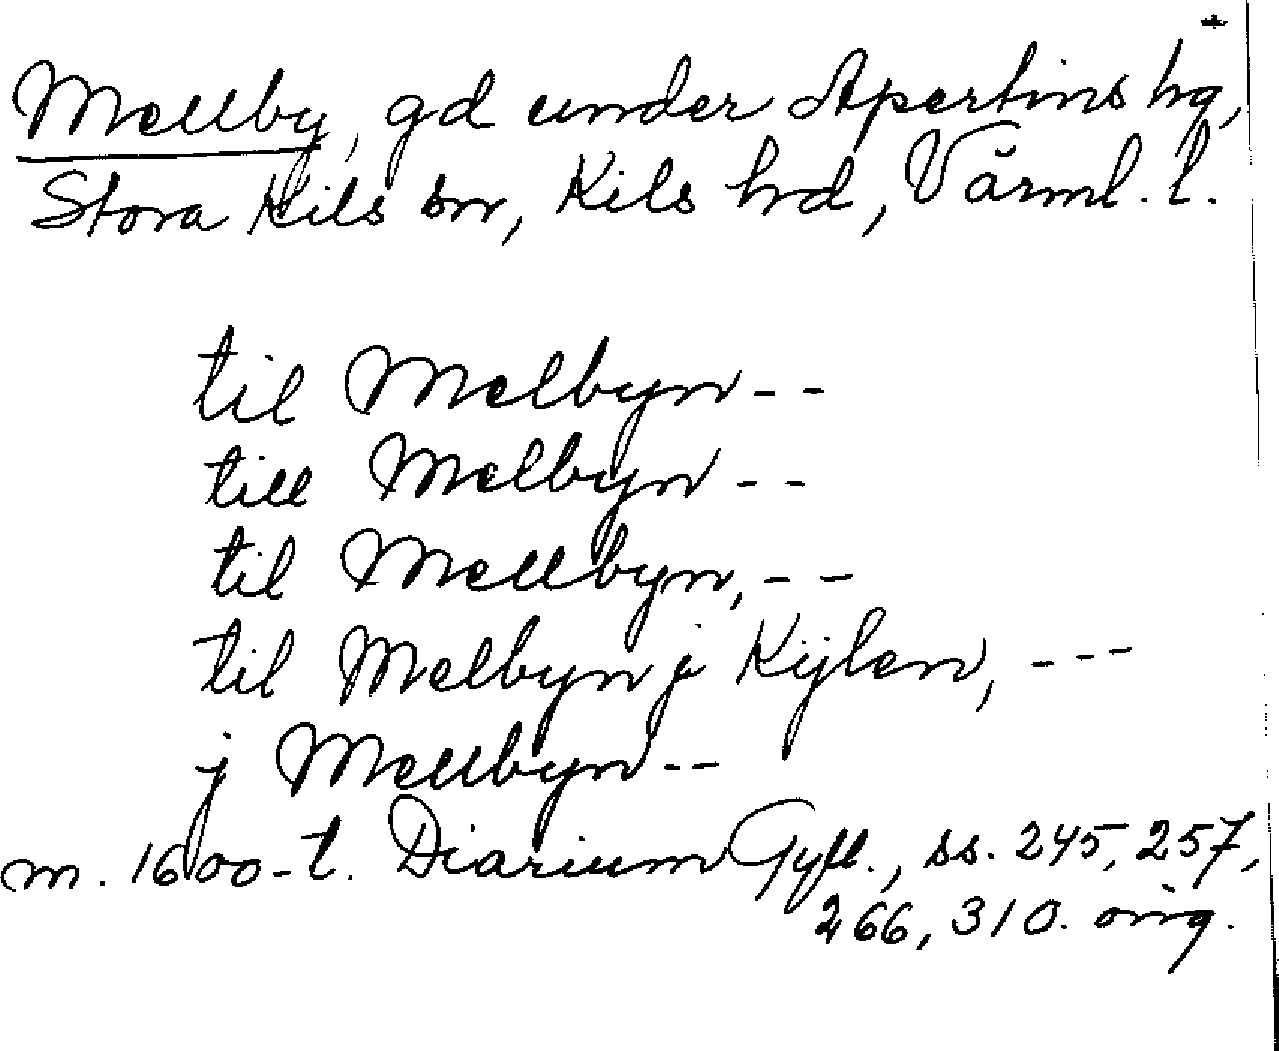 Mellby, gd under Apertins hg,
Stora Kils sn, Kils hd, Värml. l.
til Melbyn--
till Melbyn--
til Mellbyn,--
til Melbyn j Kijlen, ---
j Mellbyn--
m. 1600-t. Diarium Gyll., ss. 245, 257,
266, 310. orig.